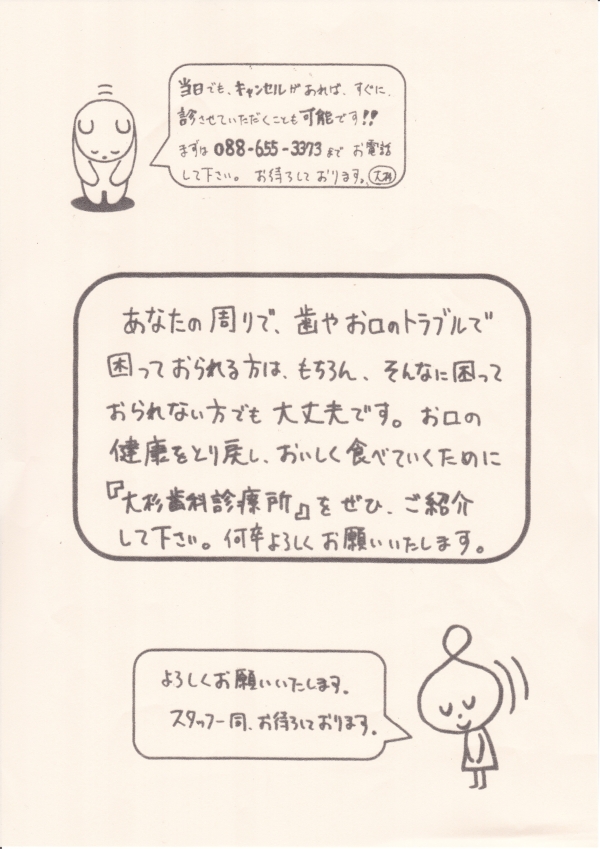 当日でも、キャンセルがあれば、すぐに、
診させていただくことも可能です!!
まずは 088-655-3373 まで お電話
して下さい。 お待ちしております。大杉
あなたの周りで、歯やお口のトラブルで
困っておられる方は、もちろん、そんなに困って
おられない方でも大丈夫です。お口の
健康をとり戻し、おいしく食べていくために
『大杉歯科診療所』をぜひ、ご紹介
して下さい。何卒よろしくお願いいたします。
よろしくお願いいたします。
スタッフ一同、お待ちしております。